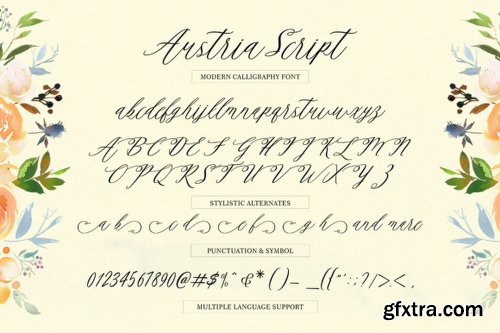 Austria Script
MODERN CALLIGRAPHY FONT
abcdefghijklmnopqrstuvwxyz
A B C D E F G H I J K L M N
O P Q R S T U V W X Y Z
STYLISTIC ALTERNATES
a b c d e f g h and more
PUNCTUATION & SYMBOL
01234567890@#$%^&*()-_{["':;?/>.<,
MULTIPLE LANGUAGE SUPPORT
gfxtra.com